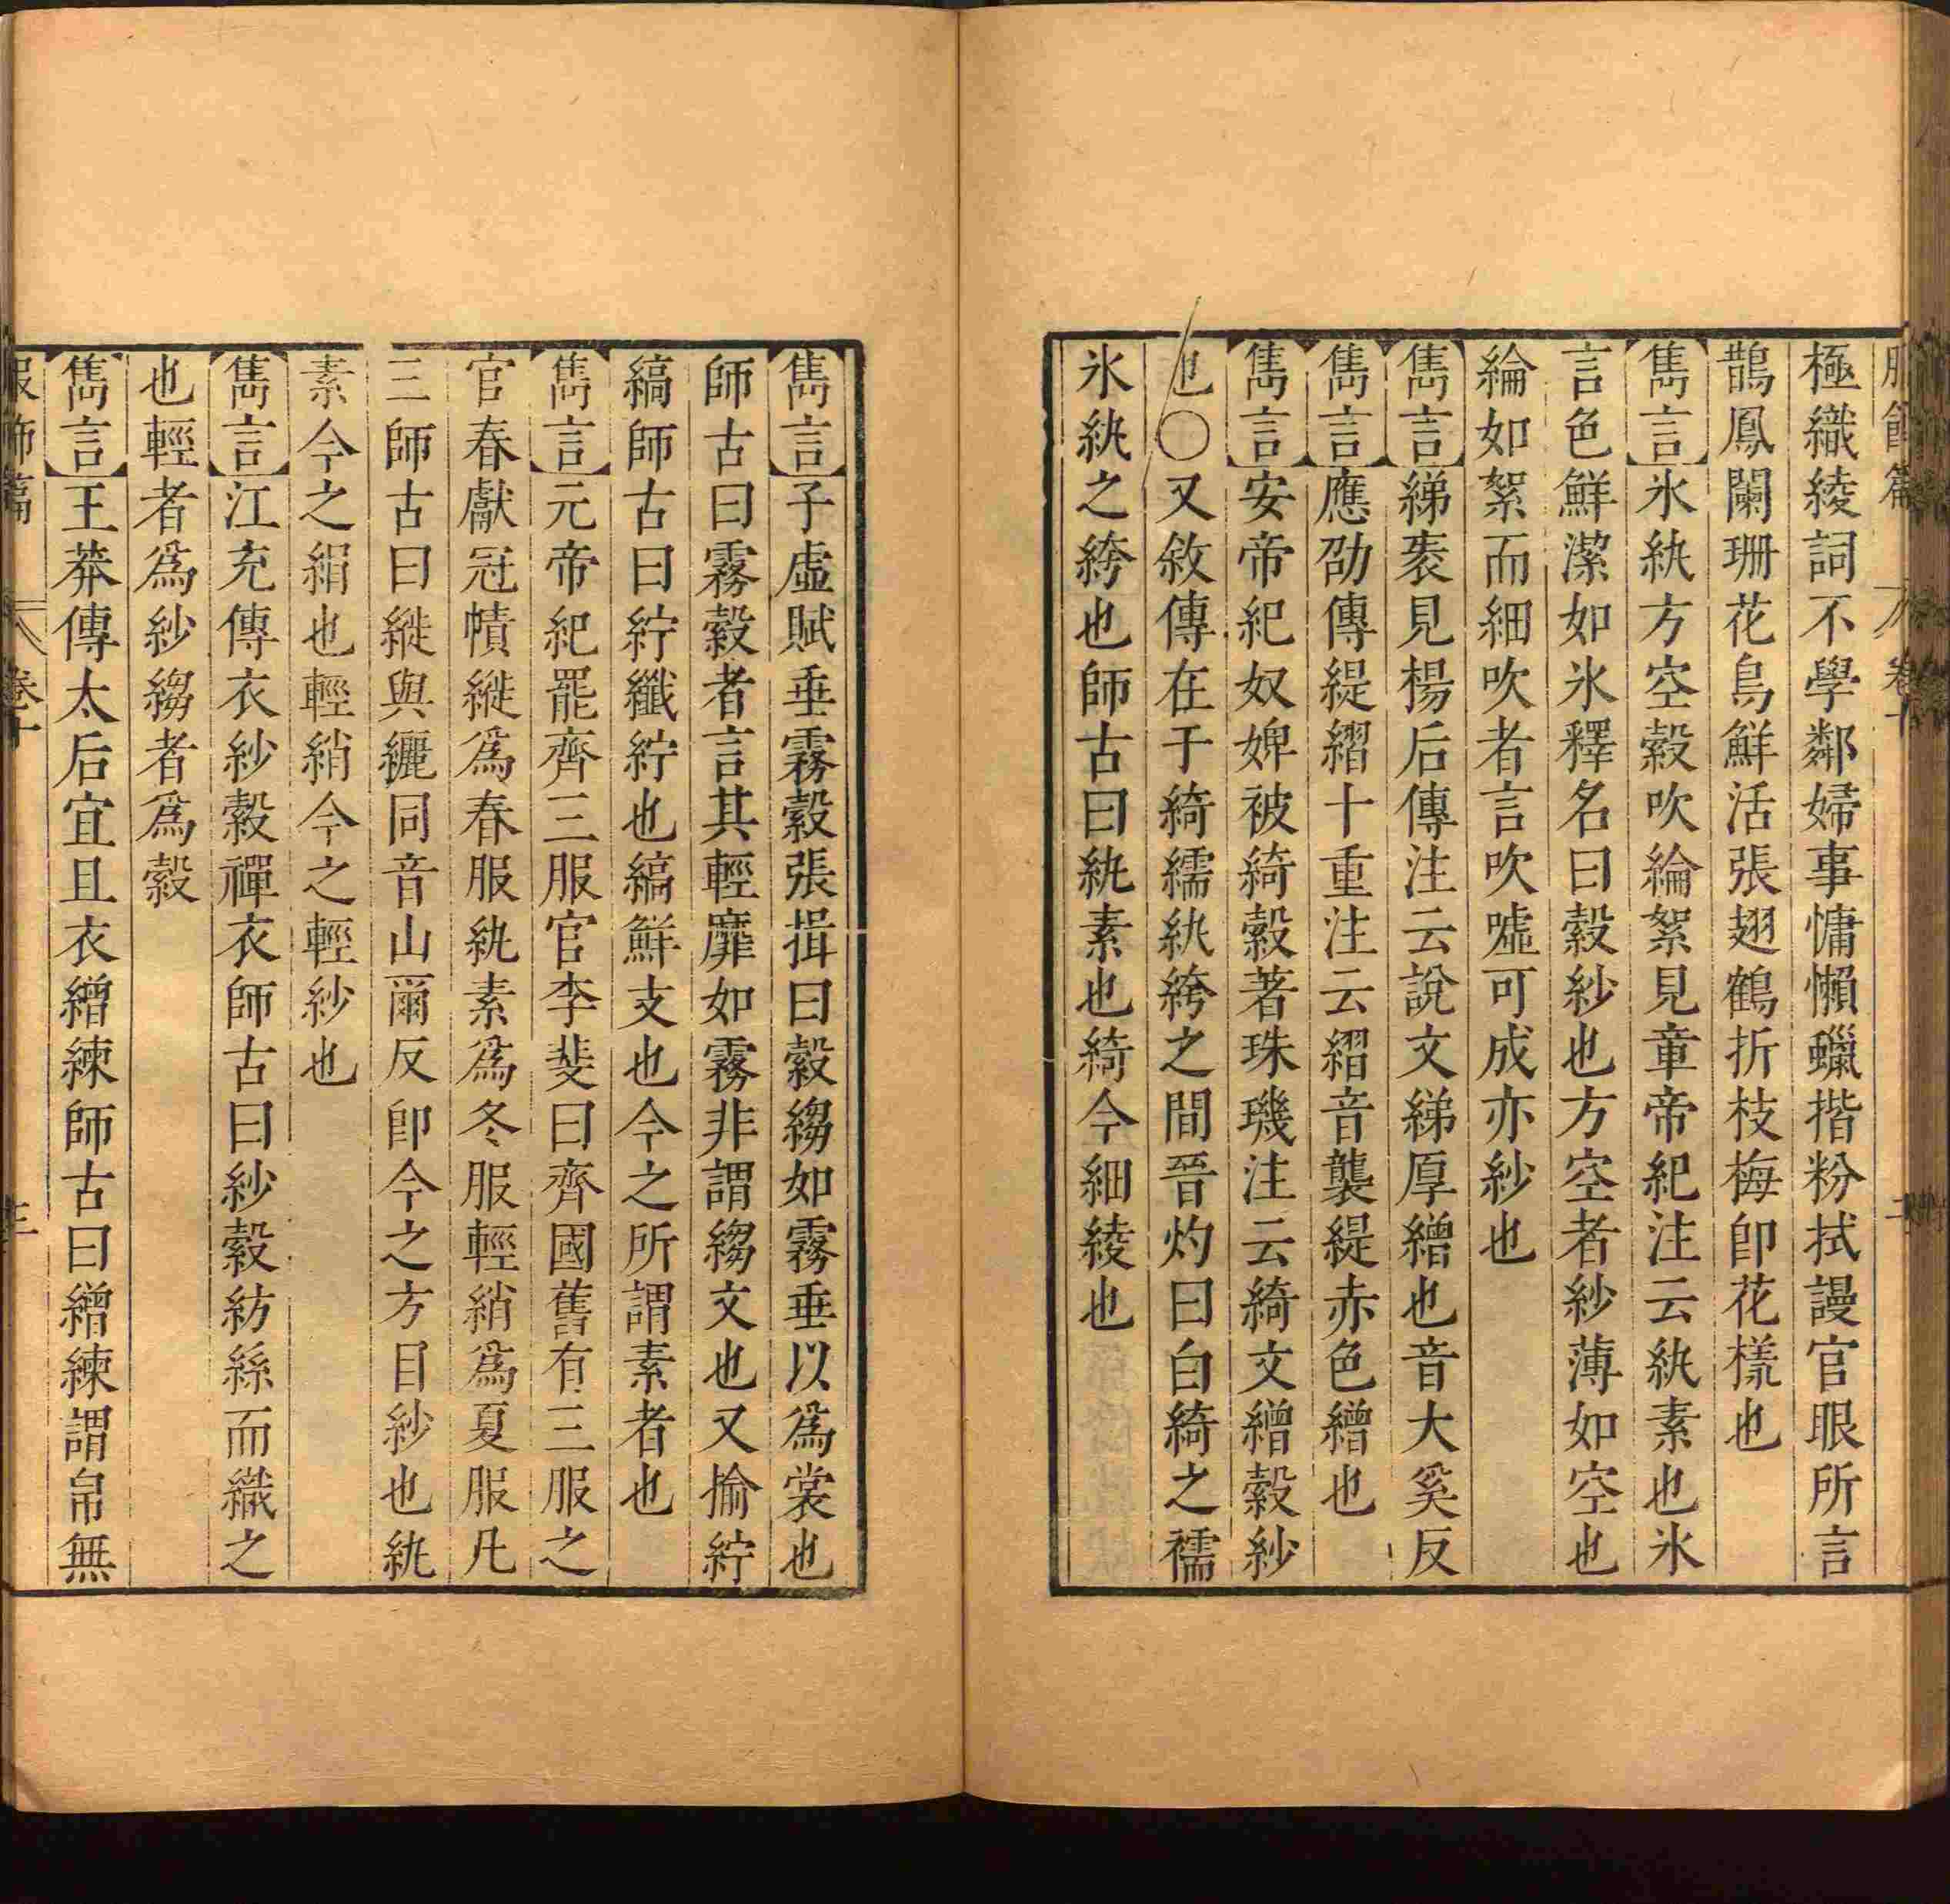 服飾篇 卷十 二
極織綾詞不學鄰婦事慵懶蠟揩粉拭謾官眼所言
鵲鳳闌珊花鳥鮮活張翅鶴折枝梅卽花樣也
雋言氷紈方空縠吹綸絮見章帝紀注云紈素也氷
言色鮮潔如氷釋名曰縠紗也方空者紗薄如空也
綸如絮而細吹者言吹噓可成亦紗也
雋言綈裘見楊后傳注云說文綈厚繒也音大奚反
雋言應劭傳緹縚十重注云縚音襲緹赤色繒也
雋言安帝紀奴婢被綺縠著珠璣注云綺文繒縠紗
也〇又敘傳在于綺繻紈絝之間晉灼曰白綺之襦
氷紈之絝也師古曰紈素也綺今細綾也
雋言子虛賦垂霧縠張揖曰縠縐如霧垂以爲裳也
師古曰霧縠者言其輕靡如霧非謂縐文也又揄紵
縞師古曰紵纖紵也縞鮮支也今之所謂素者也
雋言元帝紀罷齊三服官李斐曰齊國舊有三服之
官春獻冠幘縰爲春服紈素爲冬服輕綃爲夏服凡
三師古曰縰與纚同音山爾反卽今之方目紗也紈
素今之絹也輕綃今之輕紗也
雋言江充傳衣紗縠襌衣師古曰紗縠紡絲而織之
也輕者爲紗縐者爲縠
雋言王莽傳太后宜且衣繒練師古曰繒練謂帛無
服飾篇 卷十 三